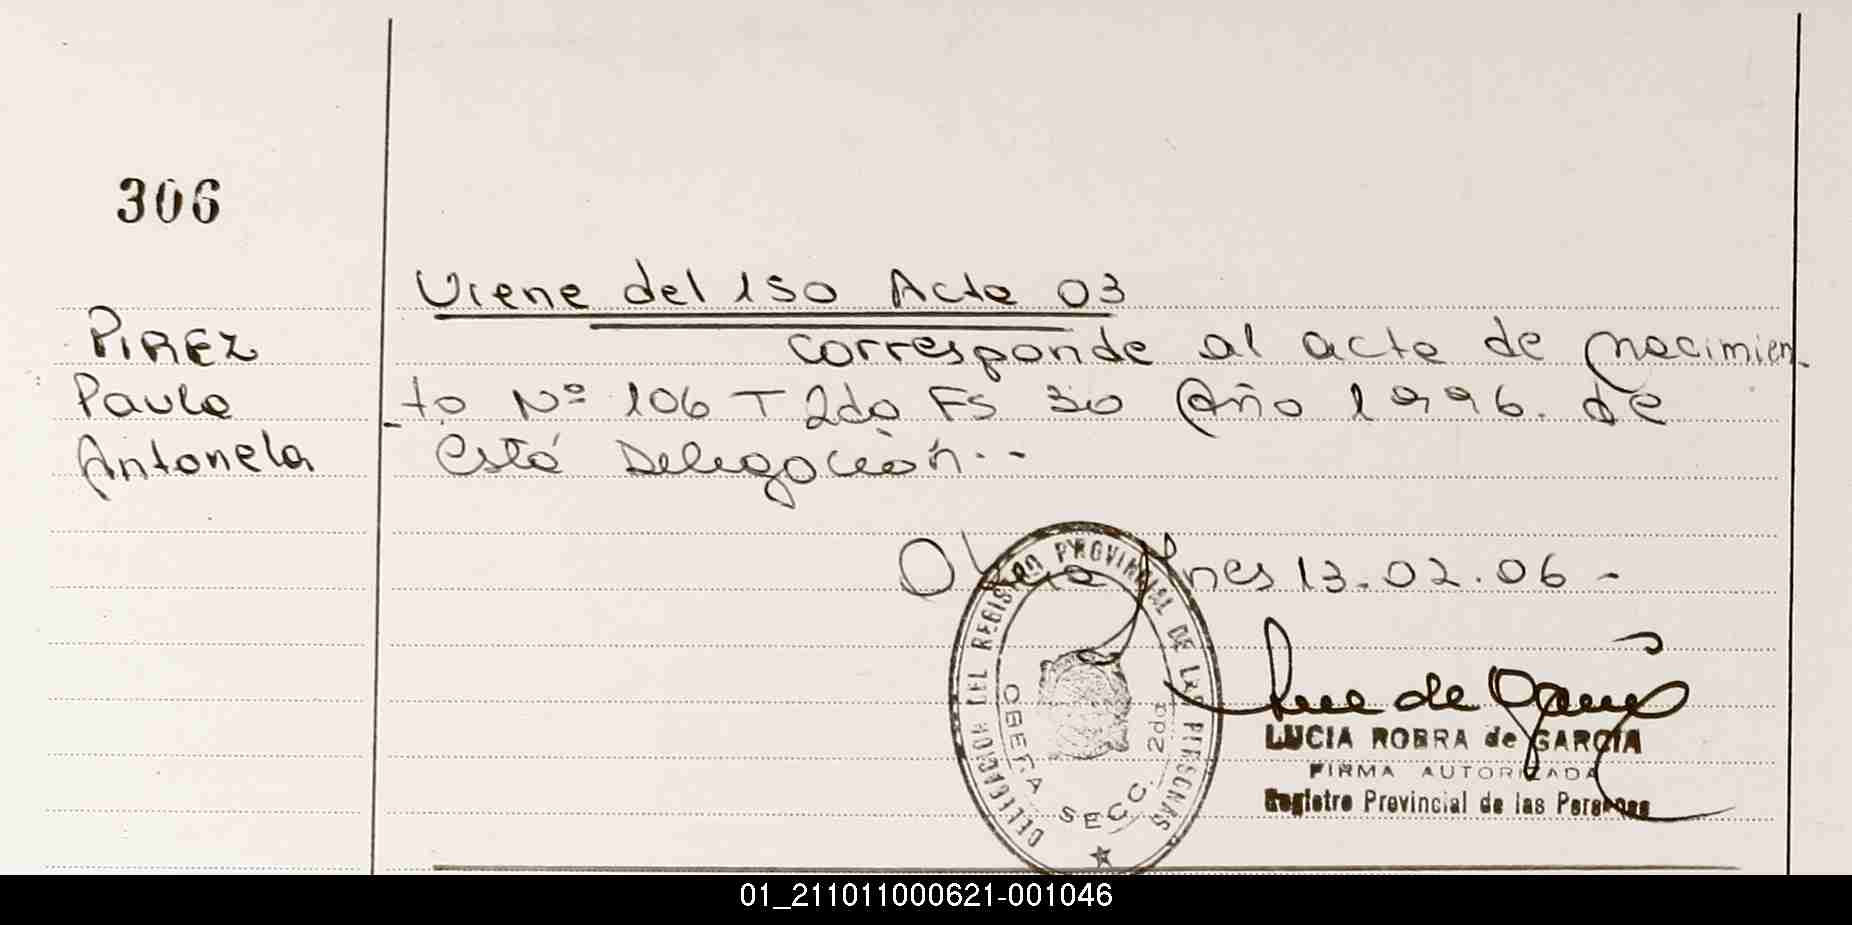 306
Viene del 150 Acta 03
PIREZ
corresponde al acta de nacimien-
Paula
-to Nº 106 T 2do Fs 30 Año 1996. de
Antonela
está Delegación.--
Obera Mnes 13.02.06-
DELEGACION DEL REGISTRO PROVINCIAL DE LAS PERSONAS
OBERA SECC. 2da
LUCIA ROBRA de GARCIA
FIRMA AUTORIZADA
Registro Provincial de las Personas
01_211011000621-001046